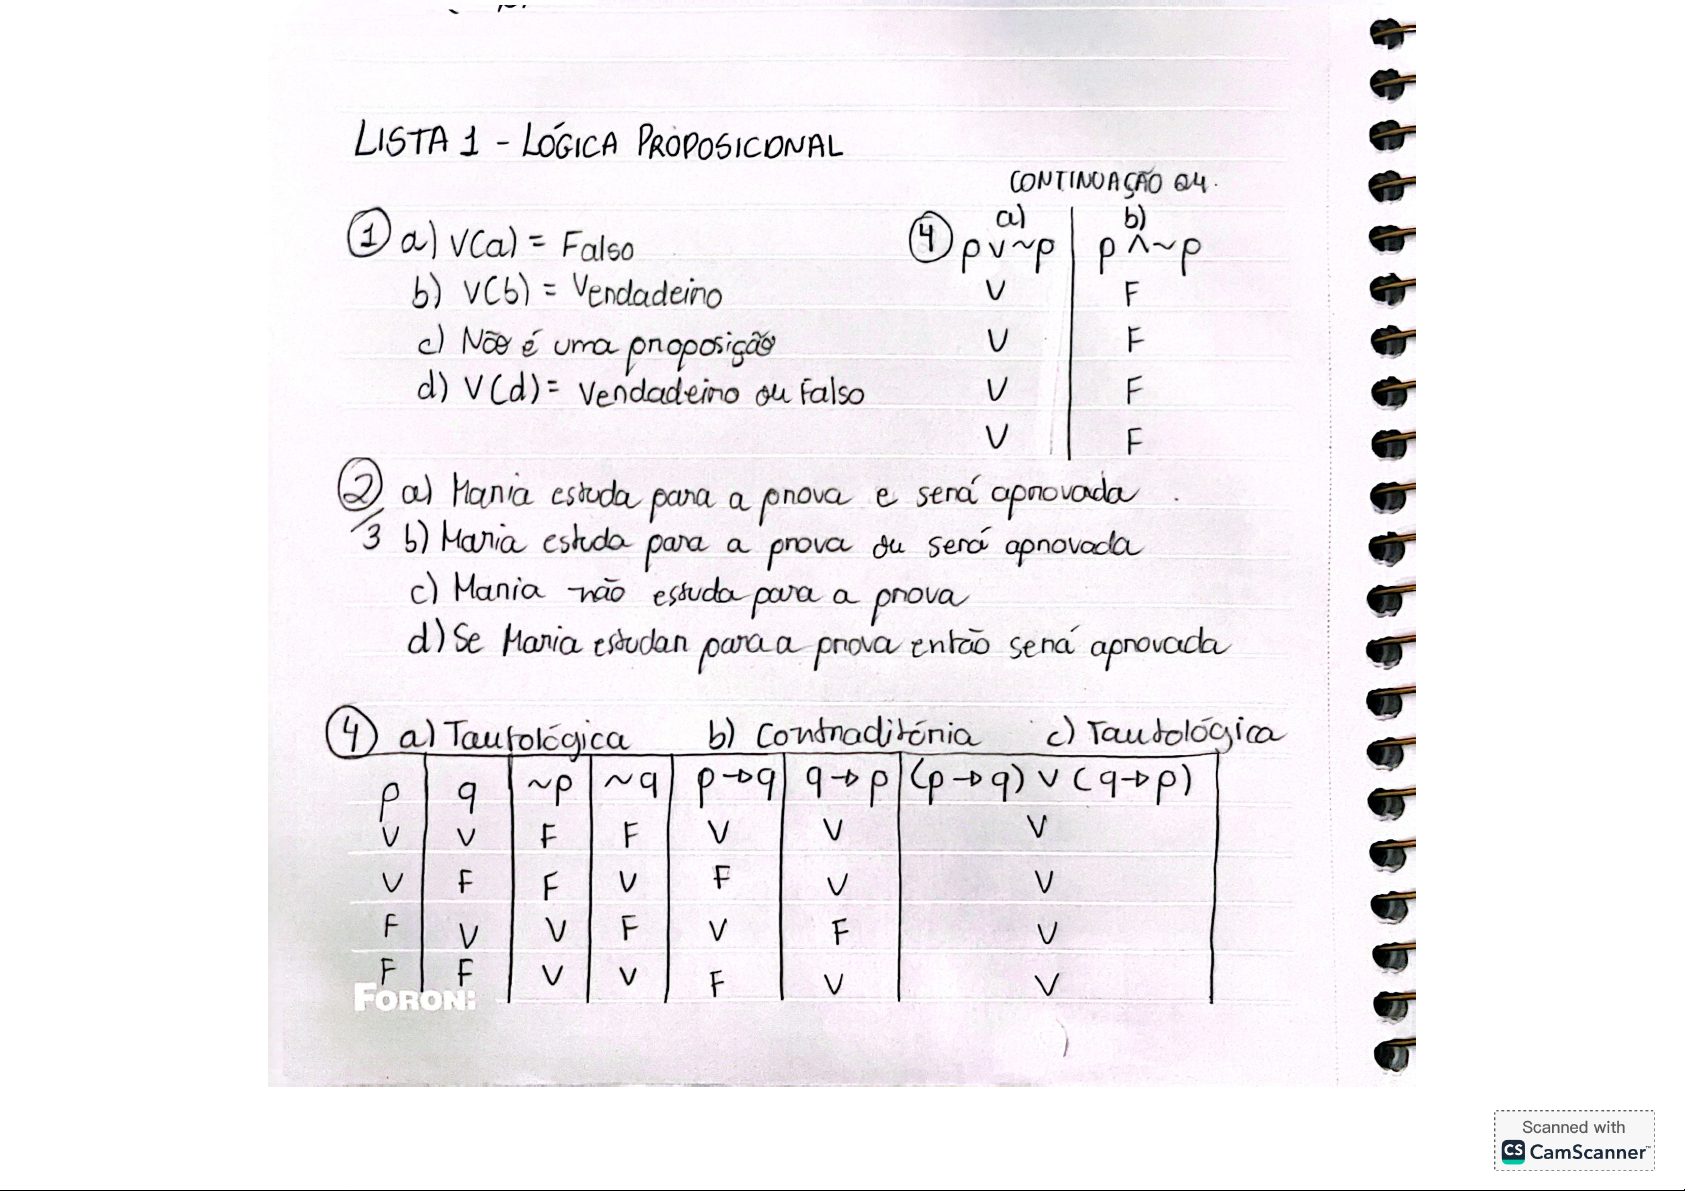 LISTA 1 - LÓGICA PROPOSICONAL
CONTINUAÇÃO Q4.
1 a) V(a) = Falso
b) V(b) = Verdadeiro
c) Não é uma proposição
d) V(d) = Verdadeiro ou Falso
4 a) b)
p v ~p p ^ ~p
V F
V F
V F
V F
2/3 a) Maria estuda para a prova e será aprovada
b) Maria estuda para a prova ou será aprovada
c) Maria não estuda para a prova
d) Se Maria estudar para a prova então será aprovada
4 a) Tautológica b) Contraditória c) Tautológica
p q ~p ~q p → q q → p (p → q) v (q → p)
V V F F V V V
V F F V F V V
F V V F V F V
F F V V F V V
FORONI
Scanned with
CS CamScanner